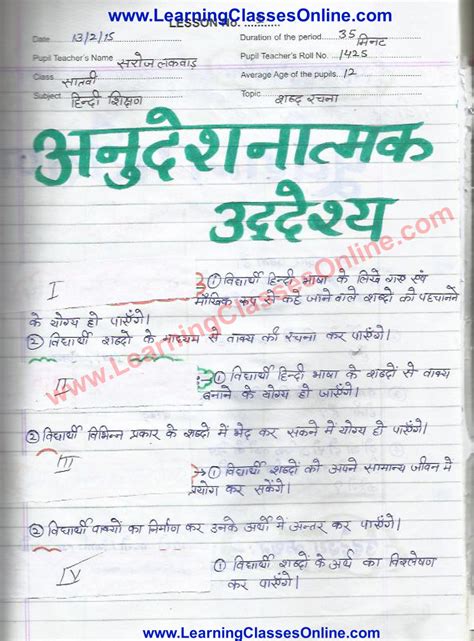 www.LearningClassesOnline.com
LESSON No. ...........
Date 13/2/15 Duration of the period 35 मिनट
Pupil Teacher's Name सरोज लकवाड़ Pupil Teacher's Roll No. 1425
Class सातवीं Average Age of the pupils 12
Subject हिन्दी शिक्षण Topic शब्द रचना
अनुदेशनात्मक
उद्देश्य
I ① विद्यार्थी हिन्दी भाषा के लिखे गए एवं
मौखिक रूप से कहे जाने वाले शब्दों को पहचानने
के योग्य हो पाएँगे।
② विद्यार्थी शब्दों के माध्यम से वाक्य की रचना कर पाएँगे।
II ① विद्यार्थी हिन्दी भाषा के शब्दों से वाक्य
बनाने के योग्य हो जाएँगे।
② विद्यार्थी विभिन्न प्रकार के शब्दों में भेद कर सकने में योग्य हो पाएँगे।
III ① विद्यार्थी शब्दों को अपने सामान्य जीवन में
प्रयोग कर सकेंगे।
② विद्यार्थी वाक्यों का निर्माण कर उनके अर्थों में अन्तर कर पाएँगे।
IV ① विद्यार्थी शब्दों के अर्थ का विश्लेषण
कर पाएँगे।
www.LearningClassesOnline.com
www.LearningClassesOnline.com